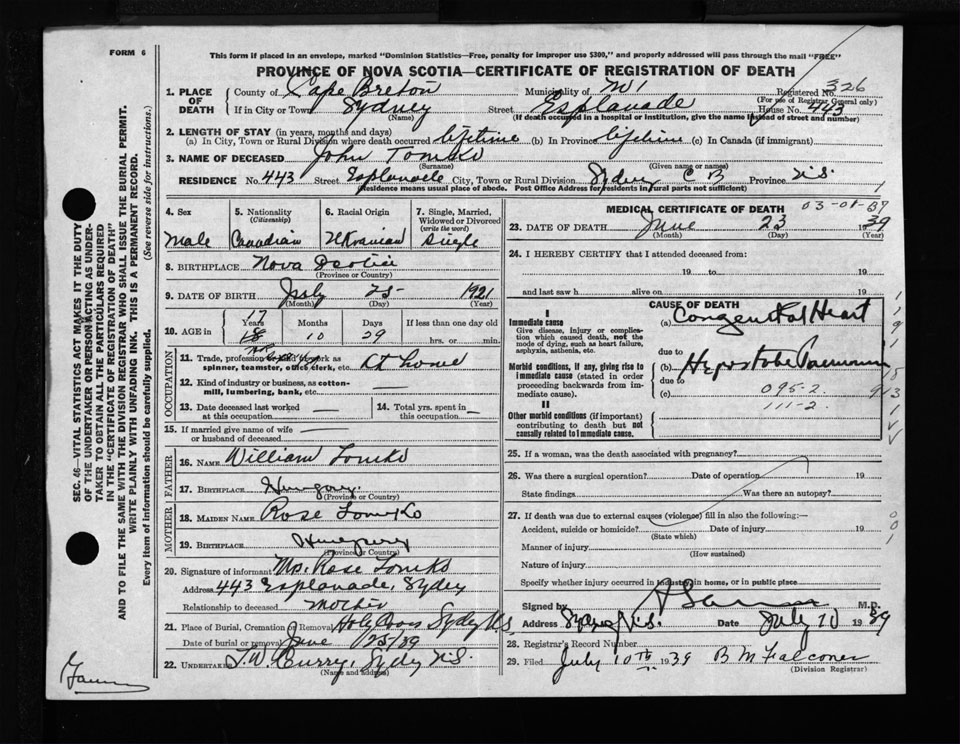 FORM 6
This form if placed in an envelope, marked "Dominion Statistics—Free, penalty for improper use $300," and properly addressed will pass through the mail "FREE"
PROVINCE OF NOVA SCOTIA—CERTIFICATE OF REGISTRATION OF DEATH
1. PLACE OF DEATH County of Cape Breton Municipality of Registered No. 326
(For use of Registrar General only)
If in City or Town Sydney Street Esplanade House No. 443
(Name) (If death occurred in a hospital or institution, give the name instead of street and number)
2. LENGTH OF STAY (in years, months and days)
(a) In City, Town or Rural Division where death occurred lifetime (b) In Province lifetime (c) In Canada (if immigrant)
3. NAME OF DECEASED John Tomko
(Surname) (Given name or names)
RESIDENCE No. 443 Street Esplanade City, Town or Rural Division Sydney C B Province N.S.
(Residence means usual place of abode. Post Office Address for residents in rural parts not sufficient)
4. Sex Male
5. Nationality (Citizenship) Canadian
6. Racial Origin Ukranian
7. Single, Married, Widowed or Divorced (write the word) Single
8. BIRTHPLACE Nova Scotia
(Province or Country)
9. DATE OF BIRTH July 25 1921
(Month) (Day) (Year)
10. AGE in 17 Years 18 Months 10 Days 29 If less than one day old hrs. or min.
OCCUPATION
11. Trade, profession or kind of work as spinner, teamster, office clerk, etc. At home
12. Kind of industry or business, as cotton-mill, lumbering, bank, etc.
13. Date deceased last worked at this occupation
14. Total yrs. spent in this occupation
15. If married give name of wife or husband of deceased
FATHER
16. NAME William Tomko
17. BIRTHPLACE Hungary
(Province or Country)
MOTHER
18. MAIDEN NAME Rose Tomko
19. BIRTHPLACE Hungary
(Province or Country)
20. Signature of informant Mrs. Rose Tomko
Address 443 Esplanade, Sydney
Relationship to deceased Mother
21. Place of Burial, Cremation or Removal Holy Cross Sydney N.S.
Date of burial or removal June 25/39
22. UNDERTAKER T.W. Curry, Sydney N.S.
(Name and address)
MEDICAL CERTIFICATE OF DEATH
03-01-39
23. DATE OF DEATH June 23 1939
(Month) (Day) (Year)
24. I HEREBY CERTIFY that I attended deceased from:
19 to 19
and last saw h alive on 19
CAUSE OF DEATH
I
Immediate cause
Give disease, injury or complication which caused death, not the mode of dying, such as heart failure, asphyxia, asthenia, etc.
(a) Congenital Heart
due to
Morbid conditions, if any, giving rise to immediate cause (stated in order proceeding backwards from immediate cause).
(b)
due to
(c) 095-2
111-2
II
Other morbid conditions (if important) contributing to death but not causally related to immediate cause.
25. If a woman, was the death associated with pregnancy?
26. Was there a surgical operation? Date of operation 19
State findings Was there an autopsy?
27. If death was due to external causes (violence) fill in also the following:—
Accident, suicide or homicide? Date of injury 19
(State which)
Manner of injury
(How sustained)
Nature of injury
Specify whether injury occurred in industry, in home, or in public place
Signed by M.D.
Address Sydney N.S. Date July 10 1939
28. Registrar's Record Number
29. Filed July 10TH 1939 B M Falconer
(Division Registrar)
SEC. 46—VITAL STATISTICS ACT MAKES IT THE DUTY
OF THE UNDERTAKER OR PERSON ACTING AS UNDER-
TAKER TO OBTAIN ALL THE PARTICULARS REQUIRED
IN THE "CERTIFICATE OF REGISTRATION OF DEATH"
AND TO FILE THE SAME WITH THE DIVISION REGISTRAR WHO SHALL ISSUE THE BURIAL PERMIT.
WRITE PLAINLY WITH UNFADING INK. THIS IS A PERMANENT RECORD.
Every item of information should be carefully supplied. (See reverse side for instructions.)